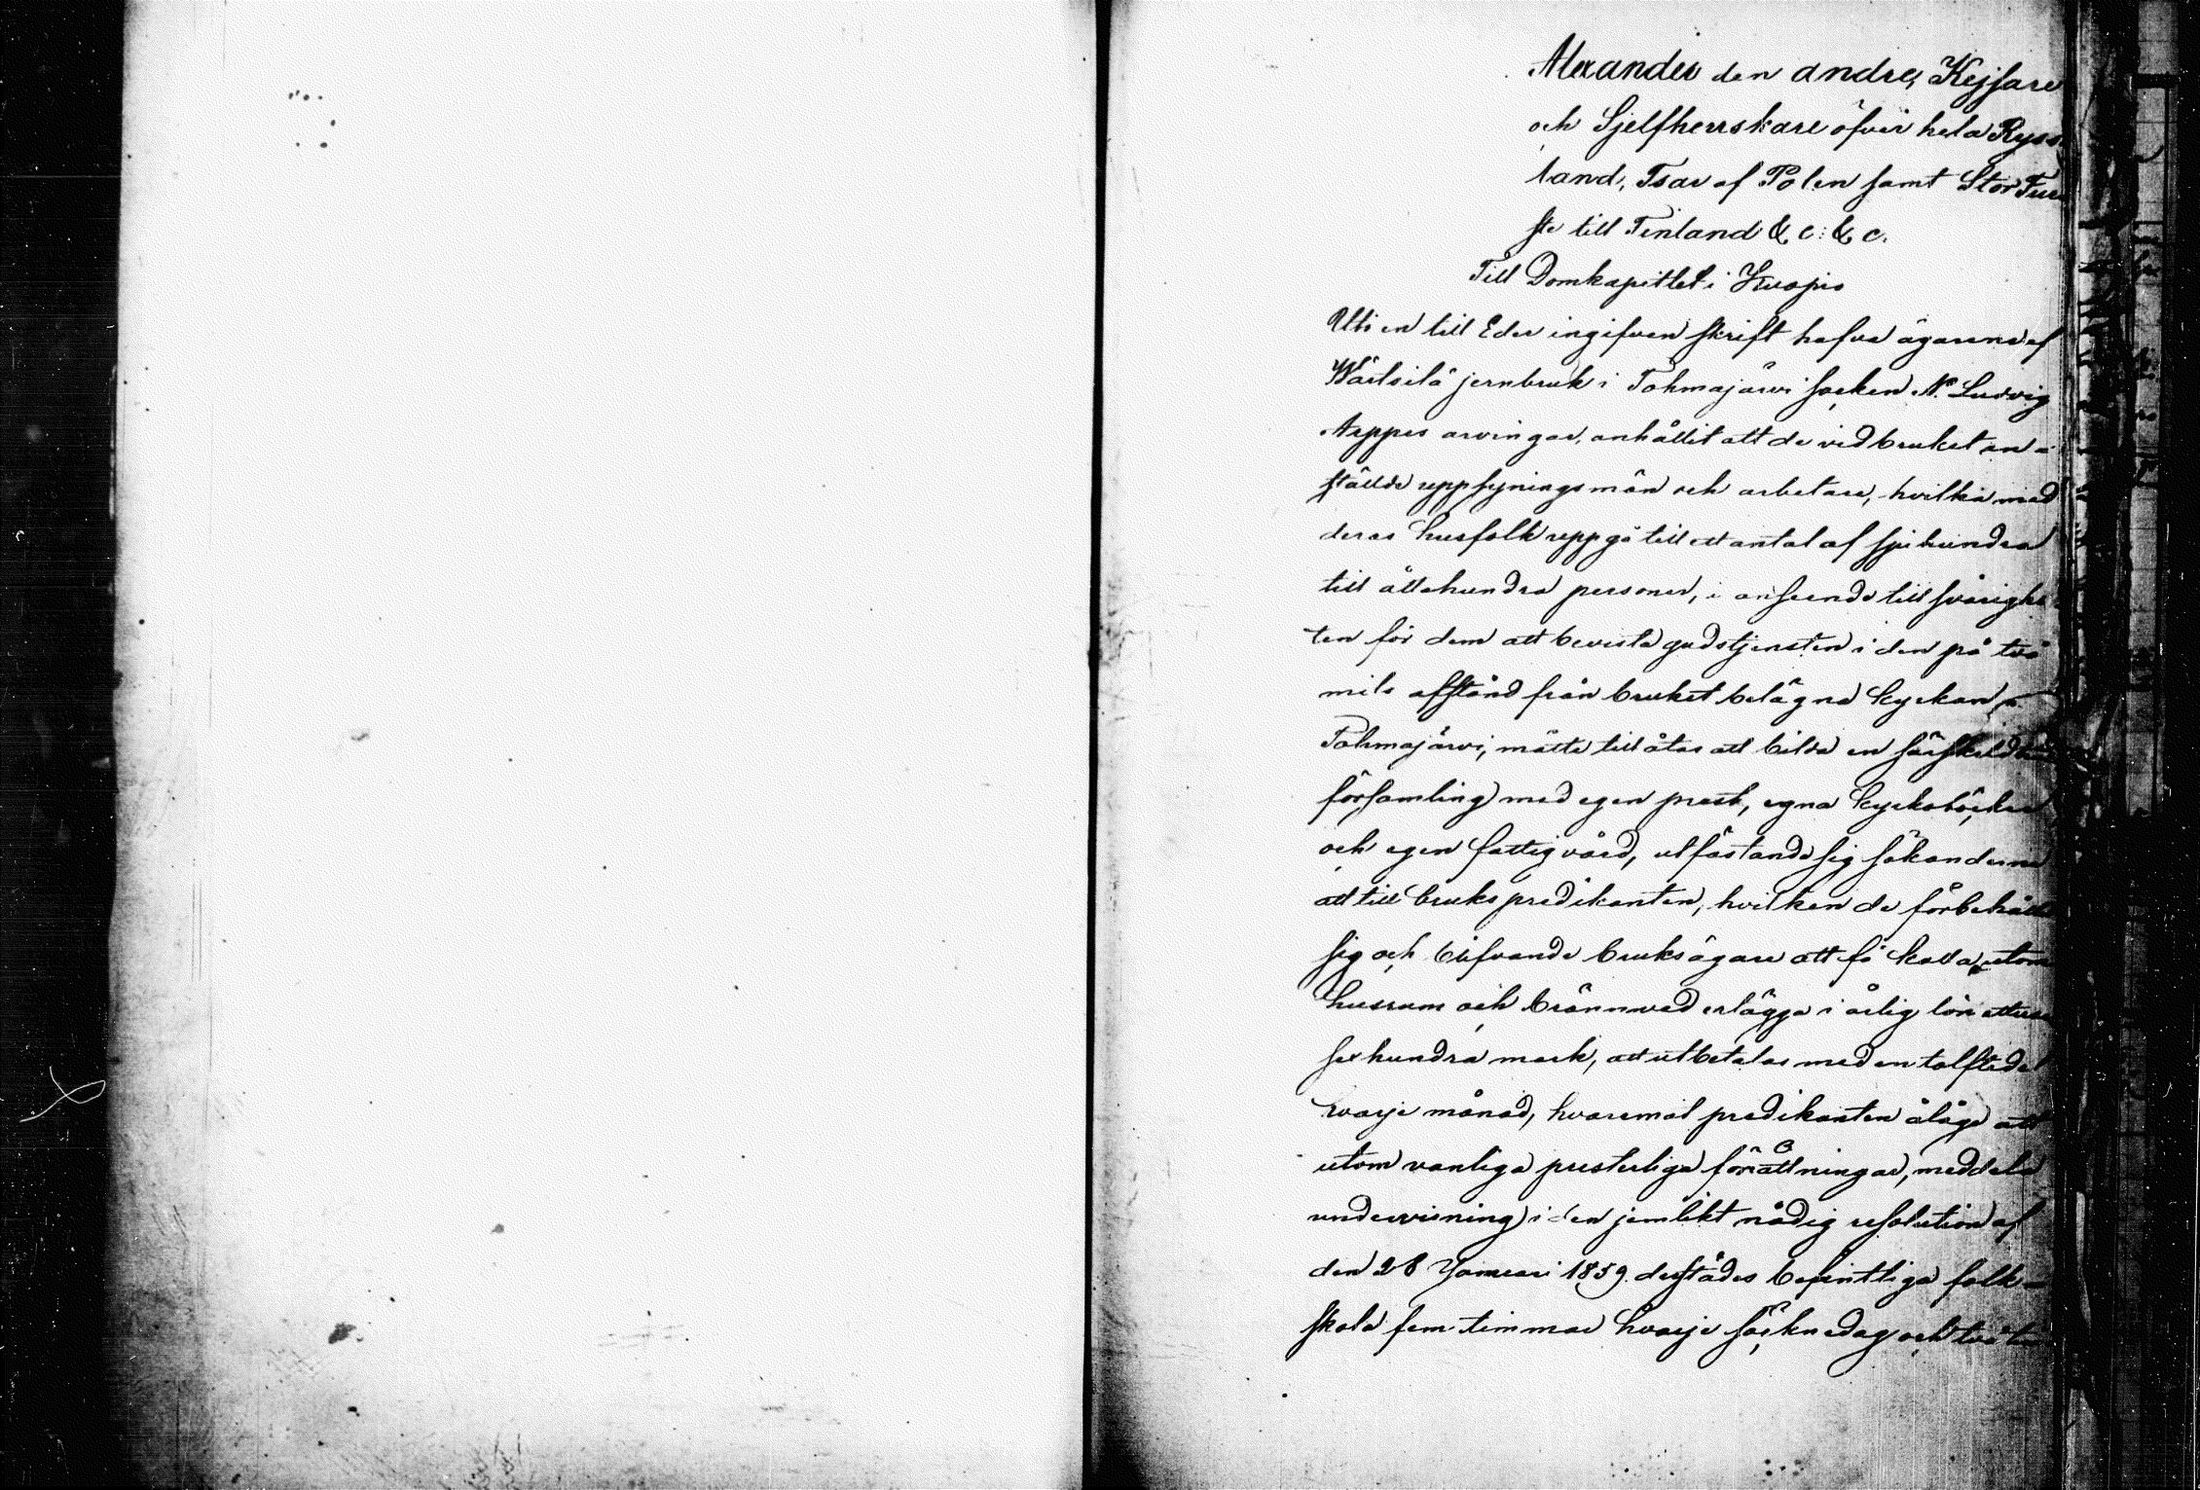 Alexander den andre, Kejsare
och Sjelfherrskare öfver hela Ryss-
land, Tsar af Polen samt Stor Fur
ste till Finland & c: & c.
Till Domkapitlet i Kuopio
Uti en till Eder ingifven skrift hafva ägarene af
Wärtsilä jernbruk i Tohmajärvi socken N. Ludvig
Arppes arvingar, anhållit att de vid bruket an-
stälde uppsyningsmän och arbetare, hvilka med
deras husfolk uppgå till ett antal af sjuhundra
till åttahundra personer, i anseende till svårighe
ten för dem att bevista gudstjensten i den på två
mils afstånd från bruket belägna kyrkan i
Tohmajärvi, måtte tillåtas att bilda en särskild
församling med egen prest, egna kyrkoböcker
och egen fattigvård, utfästande sig sökanderne
att till brukspredikanten, hvilken de förbehålla
sig och blifvande bruksägare att få kalla, utom
husrum och brännved erlägga i årlig lön ettusen
sexhundra mark, att utbetalas med en tolftedel
hvarje månad, hvaremot predikanten ålåge att
utom vanliga presterliga förrättningar, meddela
undervisning i den jemlikt nådig resolution af
den 26 Januari 1859 derstädes befintliga folk-
skola fem timmar hvarje söcknedag och två